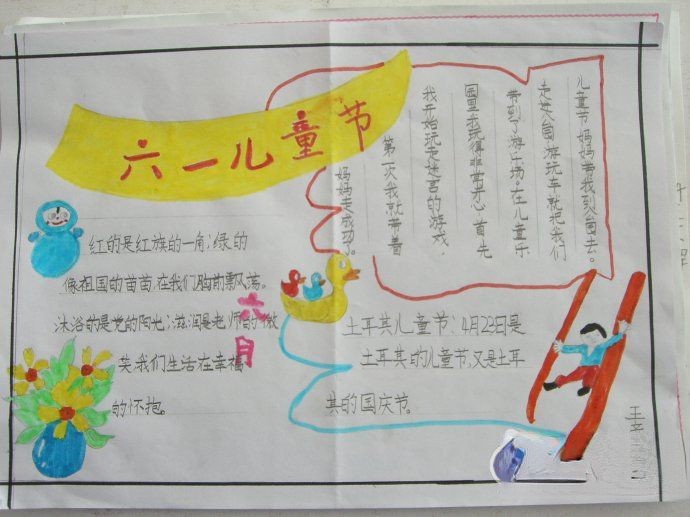 六一儿童节
儿童节妈妈带我到公园去。
走进公园游玩车就把我们
带到了游乐场。在儿童乐
园里我玩得非常开心 首先
我开始玩走迷宫的游戏，
第一次我就带着
妈妈走成功了。
红的是红旗的一角；绿的
像祖国的苗苗，在我们胸前飘荡。
沐浴的是党的阳光；滋润是老师的微
笑，我们生活在幸福
的怀抱。
六月
土耳其儿童节：4月23日是
土耳其的儿童节，又是土耳
其的国庆节。